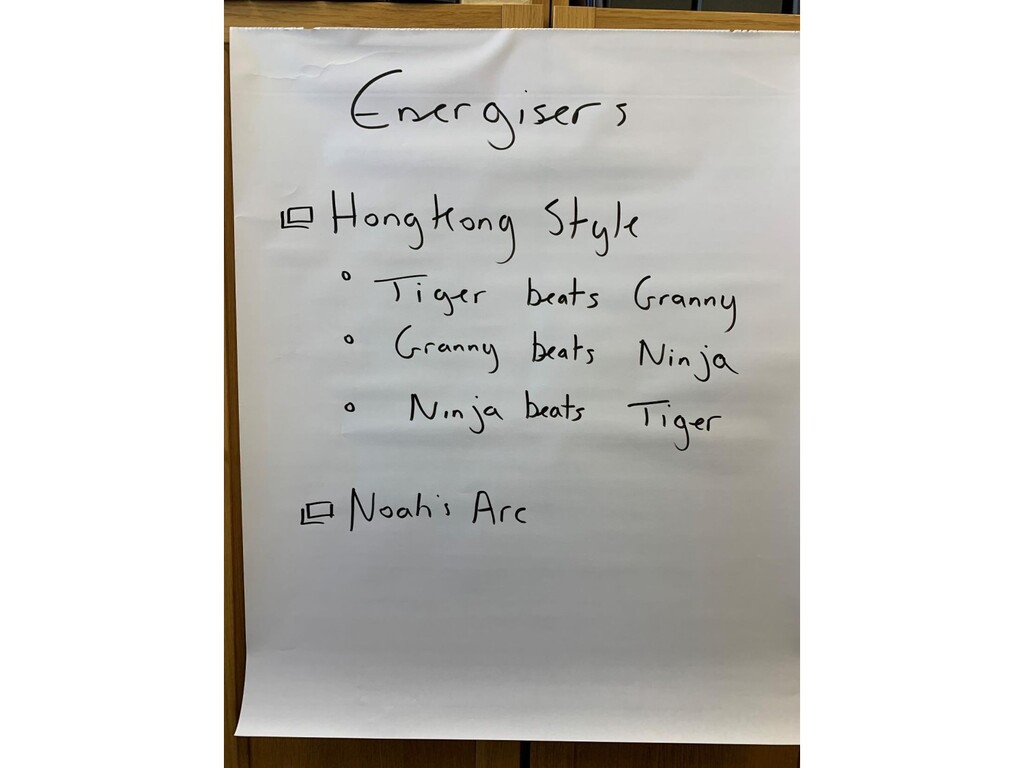 Energisers
Hong Kong Style
Tiger beats Granny
Granny beats Ninja
Ninja beats Tiger
Noah's Arc